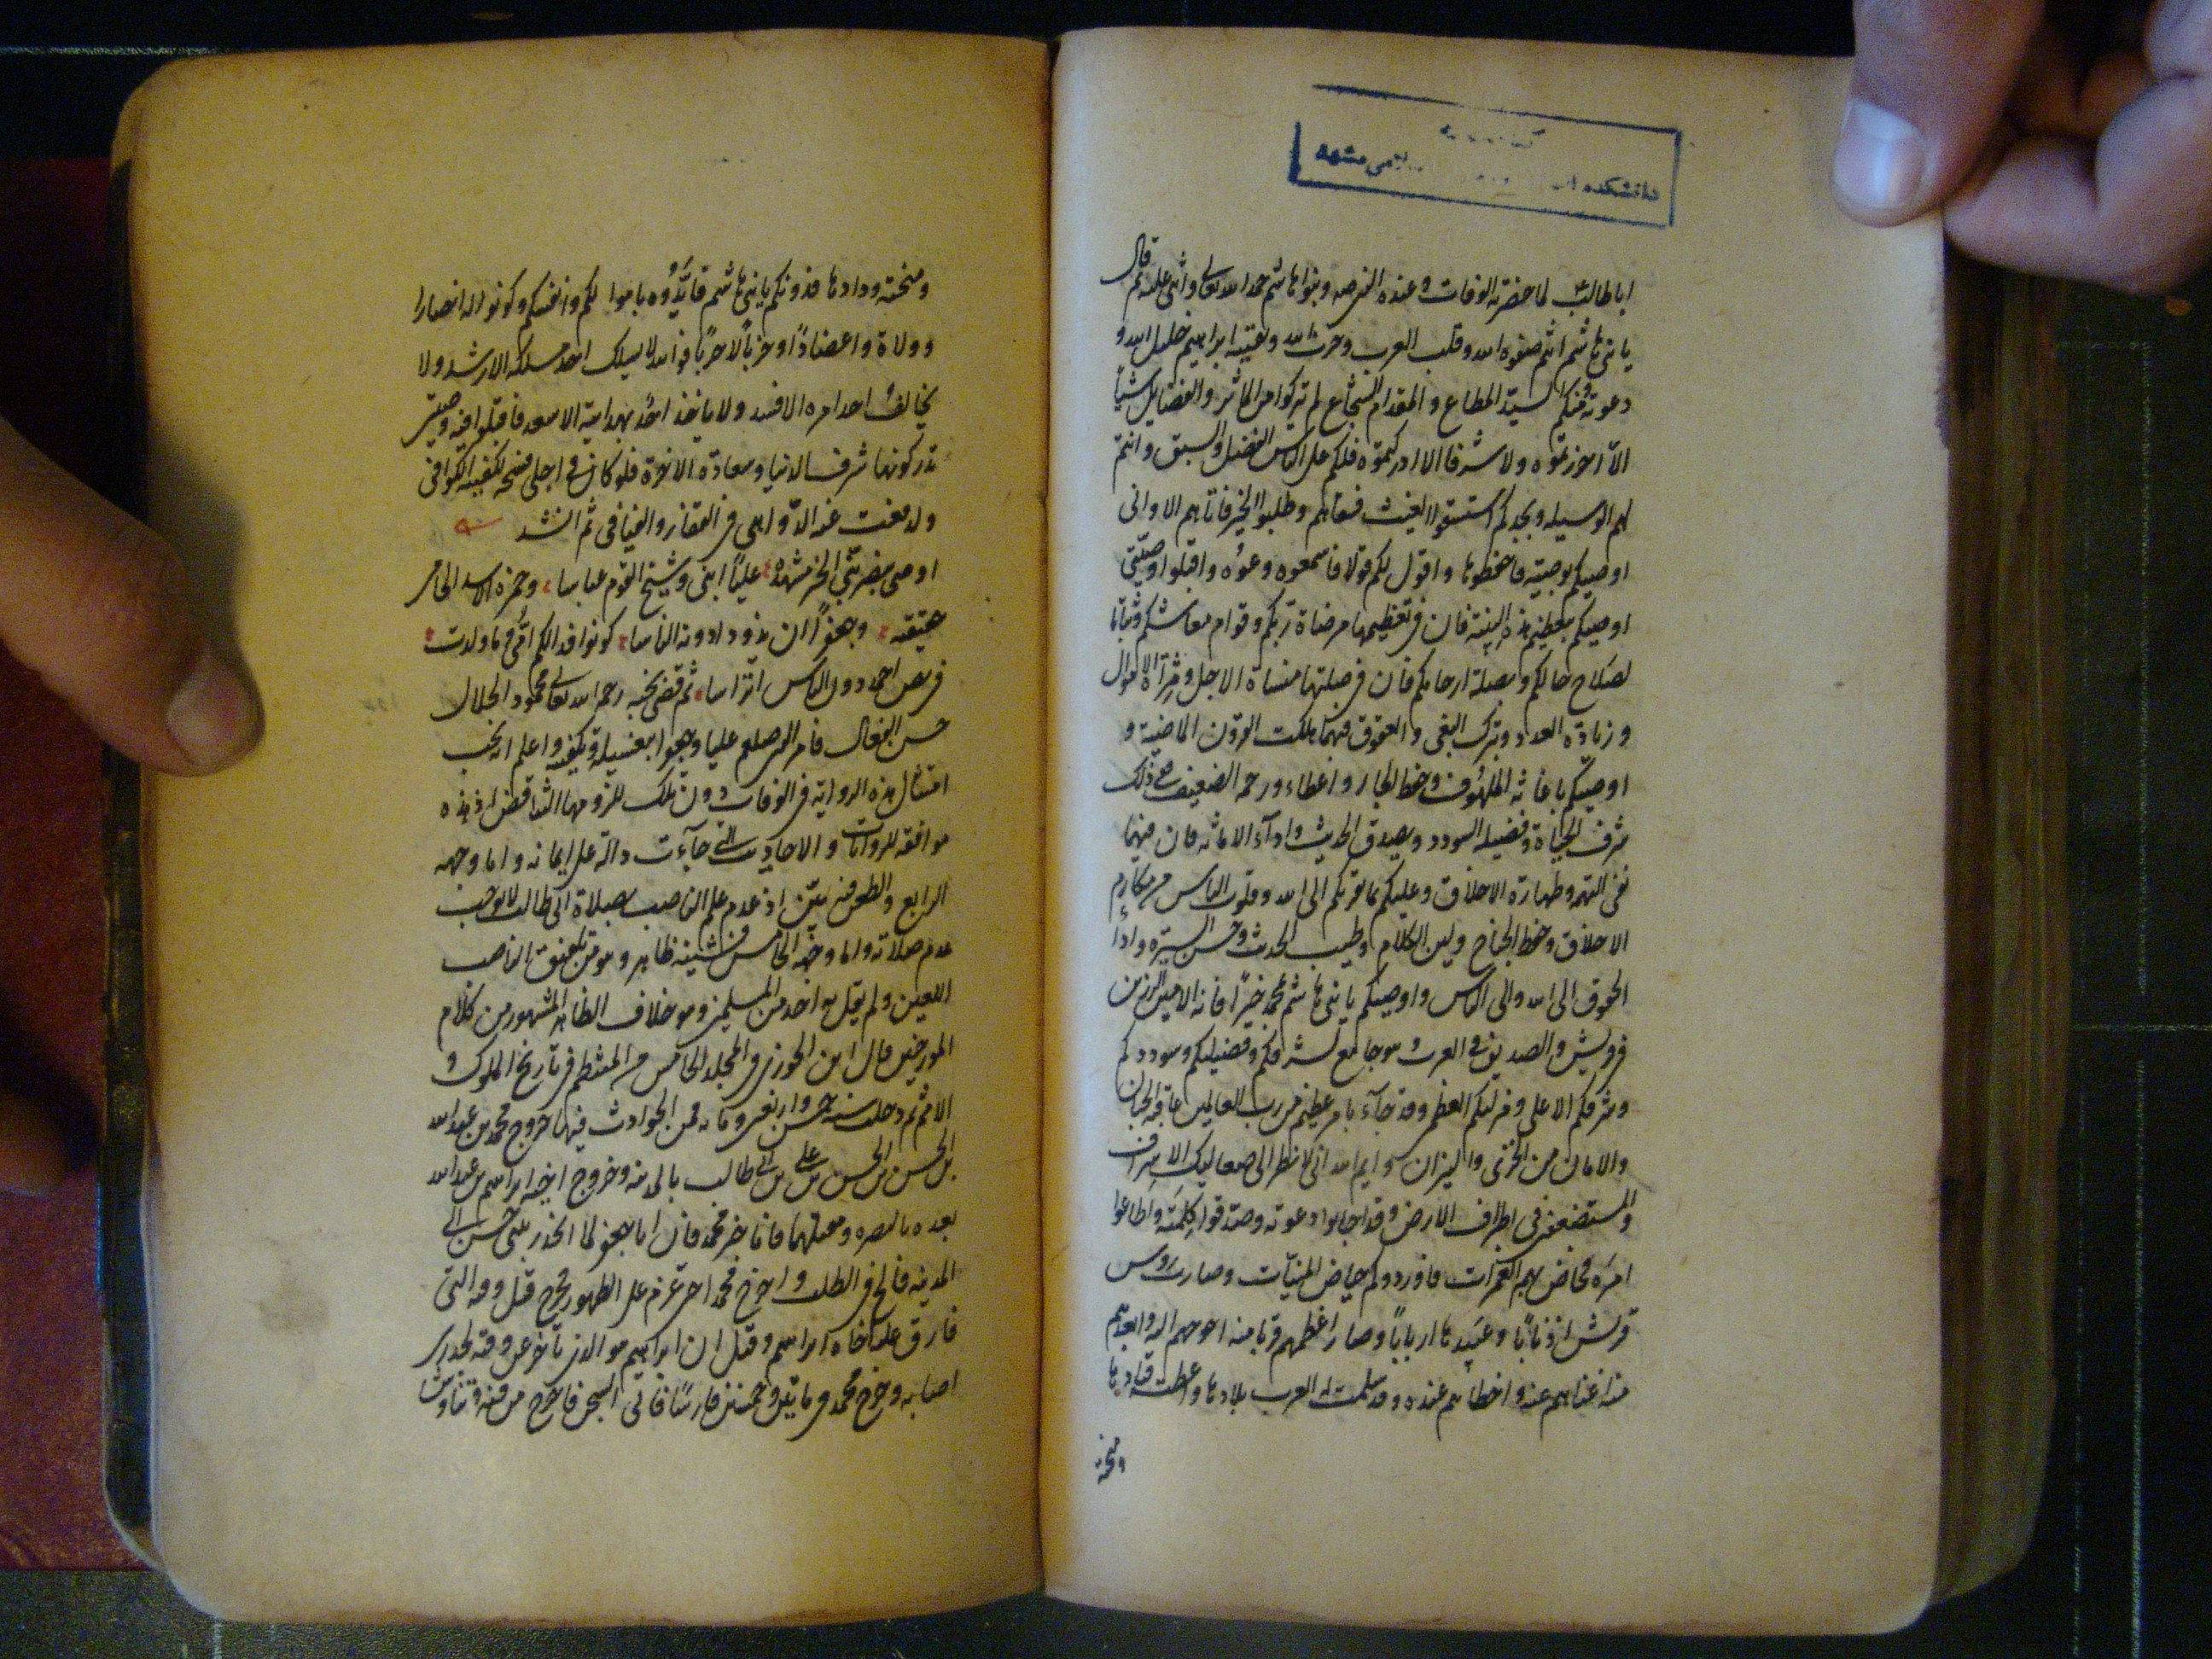 دانشكده
مشهد
قال
اباطالب لما حضرته الوفات و عنده النبى صه و بنوا هاشم حمد الله تعالى و اثنى عليه ثم
يا بنى هاشم انتم صفوه الله و قلب العرب و حزب الله و بقيته ابراهيم خليل الله و
دعوته فمنكم السيّد المطاع و المقدام الشجاع لم تتركوا من المآثر و الفضايل شيئاً
الّا احرزتموه و لا شرفا الا ادركتموه فلكم على الناس الفضل و السبق و انتم
لهم الوسيله و بجدكم استسقوا الغيث فسقاهم و طلبوا الخير فاتاهم الا و انى
اوصيكم بوصيته فاحفظوها و اقول لكم قولا فاسمعوه و عوُه و اقبلوا وصيّتى
اوصيكم بتعظيم هذه البنيّة فان فى تعظيمها مرضاة ربّكم و قوام معاشكم و ثباتا
لصَلاح حالكم و بصلة ارحامكم فان فى صلتها منساة الاجل و مثراة الاموال
و زيادَه العدد و بترك البغى و العقوق فبهما هلكت القرون الماضية و
اوصيكم باغاثه الملهُوف و حفظ الجار و اعطاء و رحمه الضعيف ففى ذلك
شرف الحياة و فضيله السودد و بصدق الحديث و ادآء الامانه فان فيهما
نفى التهمه و طهارة الاخلاق و عليكم بما يقربكم الى الله و قلوب الناس من مكارم
الاخلاق و خفظ الجناح و لين الكلام و طيب الحدث و حسن السيّره و اداءِ
الحقوق الى الله و الى الناس و اوصيكم يا بنى هاشم بمحمد خيرًا فانه الامين
فى قريش و الصديق فى العرب و هو جامع لشرفكم و فضيلتكم و سوددكم
و شرفكم الاعلى و فخركم العظمى و قد جآء بامر عظيم من رب العالمين
و الامان من الخزى و النيران و ايم الله انى لانظر الى صعاليك الاطراف
و المستضعفين فى اطراف الارض و قد اجابوا دعوته و صدّقوا كلِمتَه و اطاعوا
امره فخاض بهم الغمرات فاوردوكم حياض المنيّات و صارت روس
قريش اذنابًا و عبيدها اربابًا و صار اعظمهم قربا منه احوجهم اليه و ابعدهم
منه اغناهم عنه و احظاهم عنده و قد سلمت له العرب بلادها و اعطته قيادها
و منحته
و منحته ودادها فدونكم يا بنى هاشم فايّدُوه باموالكم و انفسكم و كونوا له انصارا
و ولاة و اعضاداً و حزباً لا حربًا فو الله لا يسلك احد مسلكه الا رشد و لا
يخالف احد امره الا فسد و لا ياخذ احد بهدايته الا سعد فاقبلوا فيه وصيّتى
تدركوا بها شرف الدنيا و سعادة الاخرة فلو كان فى اجلى فسحه لكفيته الكوافى
و لدفعت عنه الدّواهى فى القفار و الفيافى ثم انشد
اوصى بنصر نبى الخير مشهده علياً ابنى و شيخ القوم عباسا و حمزه الاسد الحامى
حقيقته و جعفرًا ان يذود دونه الناسا كونوا فدا لكم امّى و ما ولدت
فى نصر احمد دون الناس اتراسا ثم قضى نحبه رحمه الله تعالى محمود الخلال
حسن الفعال فامر النبى صلعم عليا و جعفرا بغسيله و تكفينه و اعلم انه يجب
امتثال هذه الروايه فى الوفات دون تلك للزومها التناقض اذ هذه
موافقه للروايات و الاحاديث التى جآءَت دالّه على ايمانه و اما وجهه
الرابع و الطعن فبيّن اذ عدم علم الناصب بصلاة ابى طالب لا يوجب
عدم صلاته و اما وجهه الخامس فشينه ظاهر و هو من
اللعين و لم يقل به احد من المسلمين و هو خلاف الظاهر المشهور من كلام
المورخين قال ابن الجوزى فى المجلد الخامس من المنتظم فى تاريخ الملوك و
الامم ثم دخلت سنه خمس و اربعين و مائه فمن الحوادث فيها خروج محمد بن عبدالله
بن الحسن بن الحسن بن على بن ابى طالب بالمدينه و خروج اخيه ابراهيم بن عبدالله
بعده بالبصره و مقتلهما فاما خبر محمد فان ابا جعفر لما انحدر ببنى حسن الى
المدينه فالح فى الطلب و احرج محمدا حتى عزم على الظهور فخرج قبل وقته الذى
فارق عليه اخاه ابراهيم و قيل ان ابراهيم هو الذى تاخر عن وقته لجدرى
اصابه و خرج محمد فى مايتين و خمسين فارسًا فاتى السجن فاخرج من فيه